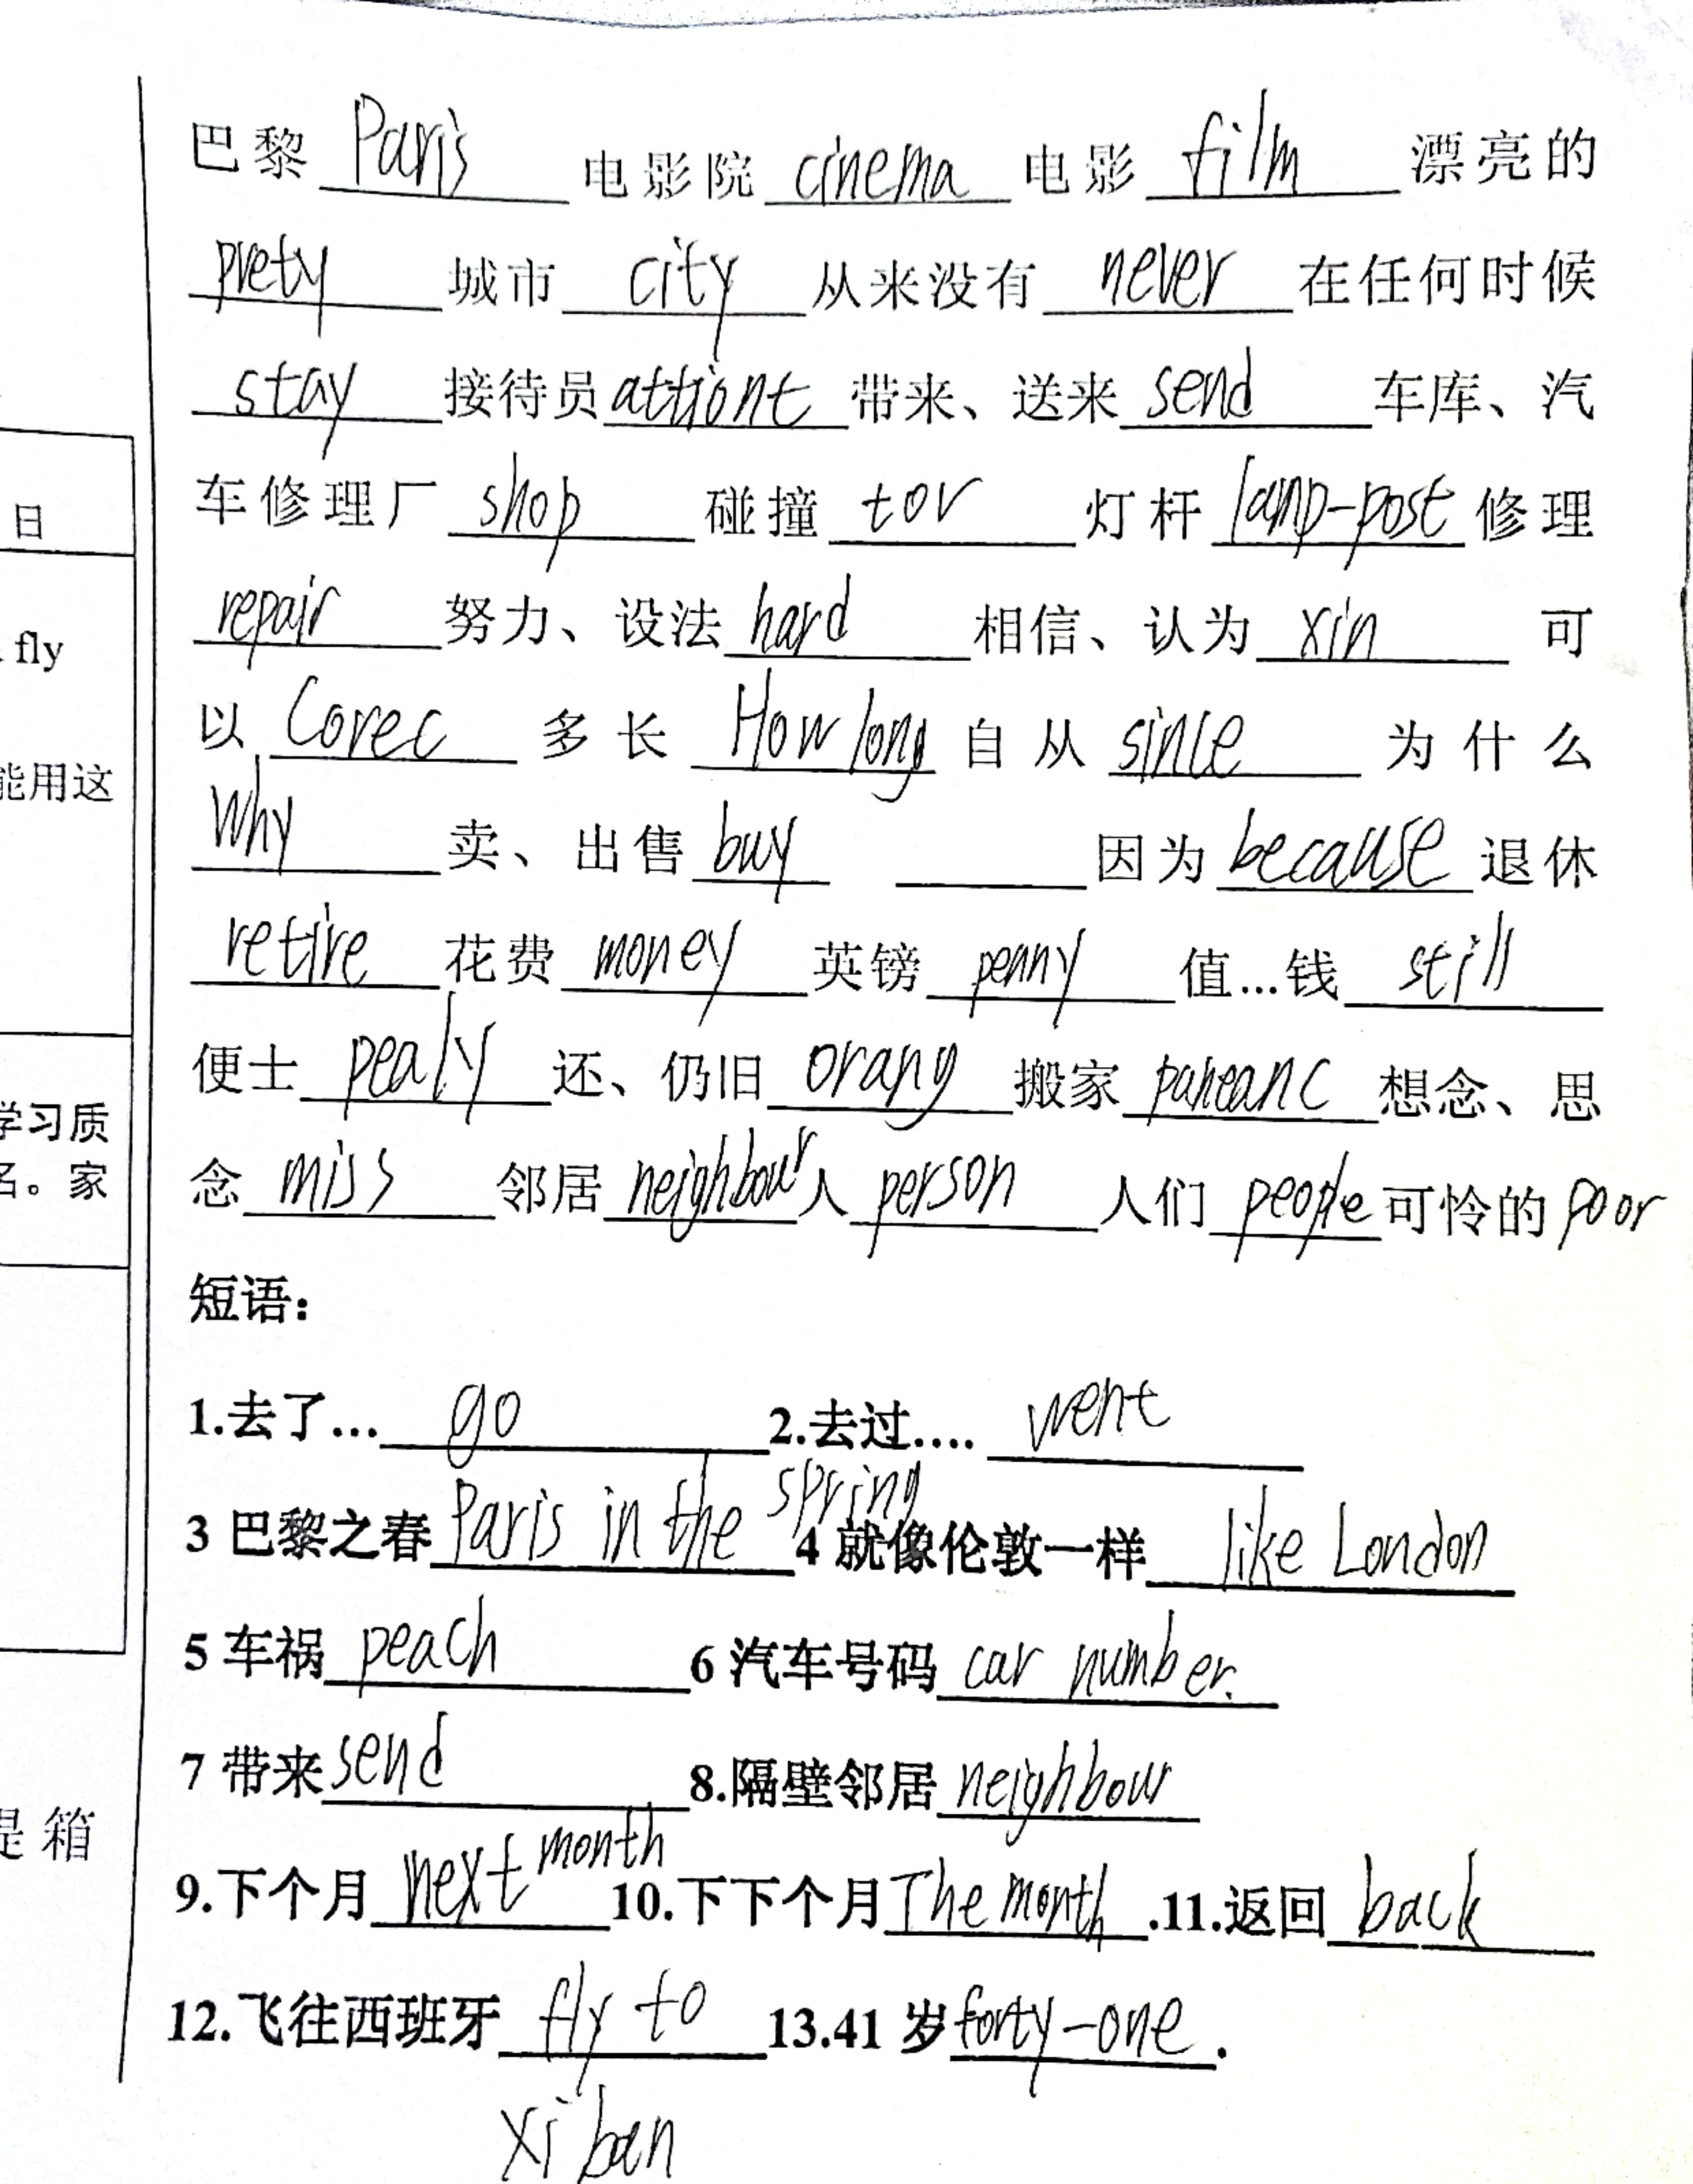 巴黎 Paris 电影院 cinema 电影 film 漂亮的
prety 城市 city 从来没有 never 在任何时候
stay 接待员 attiont 带来、送来 send 车库、汽
车修理厂 shop 碰撞 tov 灯杆 lamp-post 修理
日
repair 努力、设法 hard 相信、认为 xin 可
fly
以 Corec 多长 How long 自从 since 为什么
能用这
why 卖、出售 buy 因为 because 退休
retire 花费 money 英镑 penny 值...钱 still
便士 pealy 还、仍旧 orang 搬家 paneanc 想念、思
学习质
念 miss 邻居 neighbour 人 person 人们 people 可怜的 poor
名。家
短语:
1.去了... go 2.去过.... went
3 巴黎之春 Paris in the spring 4 就像伦敦一样 like London
5 车祸 peach 6 汽车号码 car number.
7 带来 send 8.隔壁邻居 neighbour
是箱
9.下个月 next month 10.下下个月 The month .11.返回 back
12.飞往西班牙 fly to 13.41 岁 forty-one .
xi ban